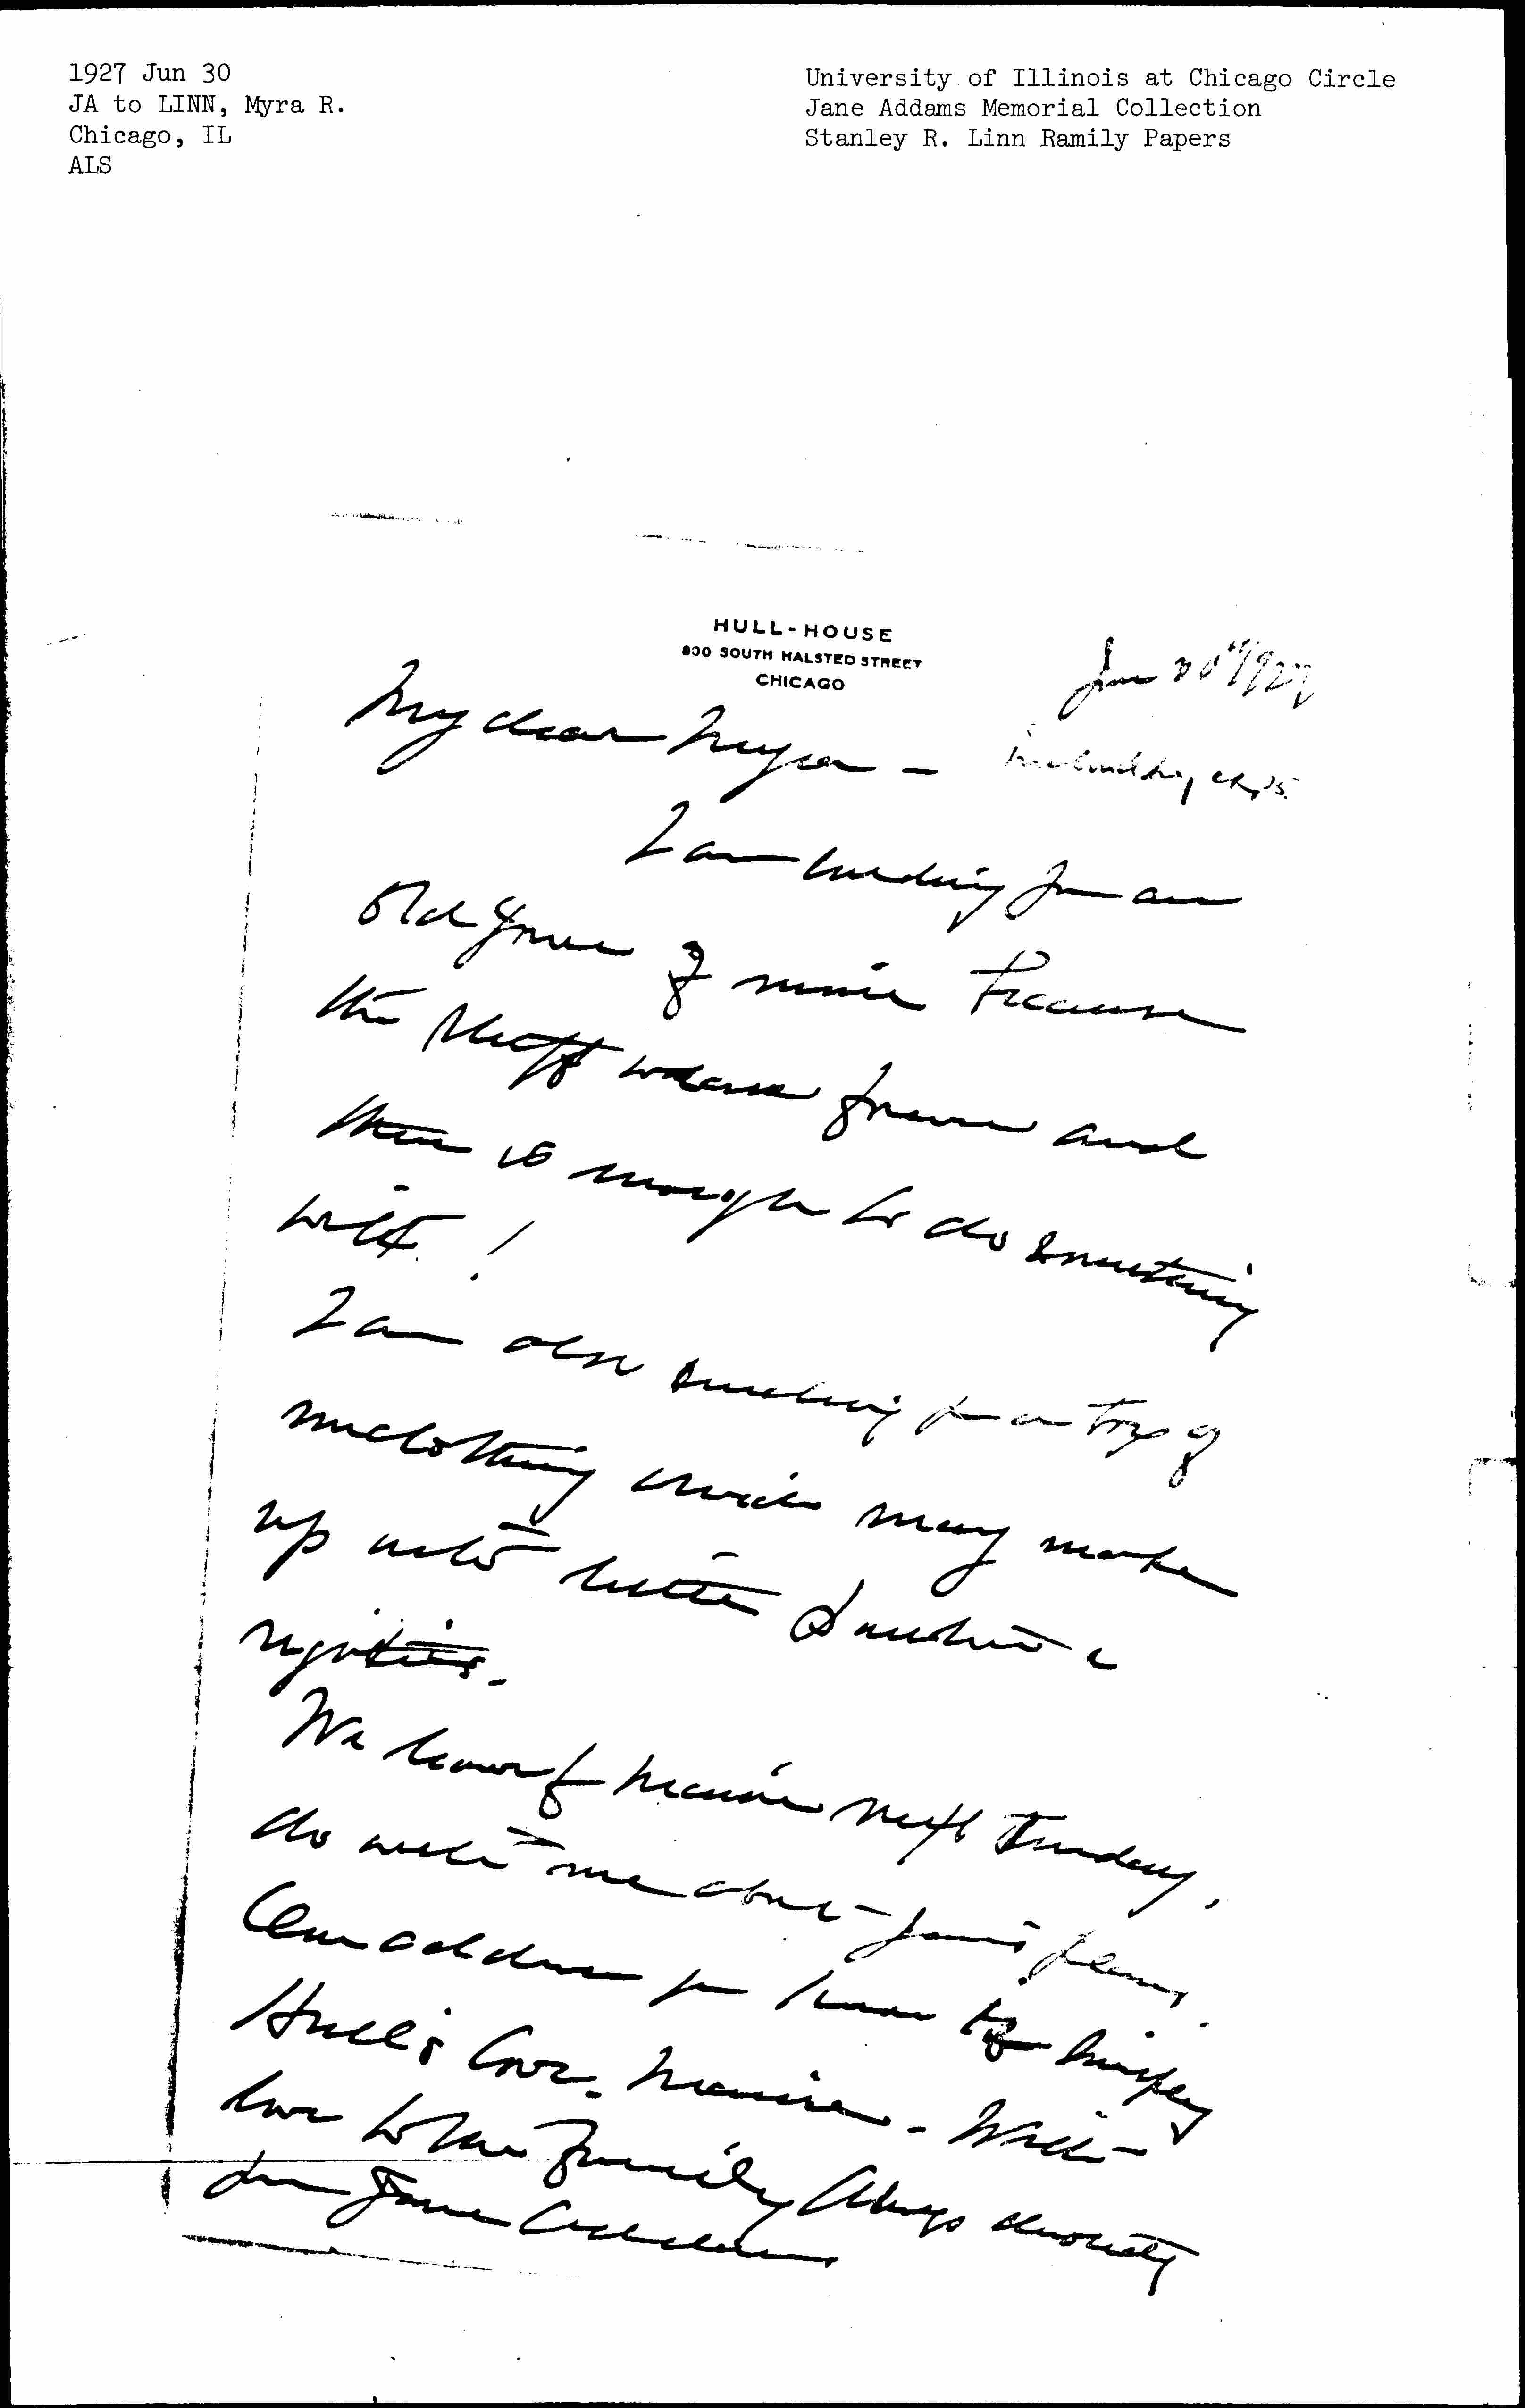 1927 Jun 30
JA to LINN, Myra R.
Chicago, IL
ALS
University of Illinois at Chicago Circle
Jane Addams Memorial Collection
Stanley R. Linn Ramily Papers
HULL-HOUSE
800 SOUTH HALSTED STREET
CHICAGO
June 30" 1927
My dear Myra –
I am sending you an
old gown of mine because
the stuff is and
there is enough to do something
with!
I am also sending you a box of
which may make
up into little
We leave for Maine next Tuesday,
do write me about your plans,
Our address
Hull's Cove. Maine – With
love to the family Always devotedly
yr Jane Addams